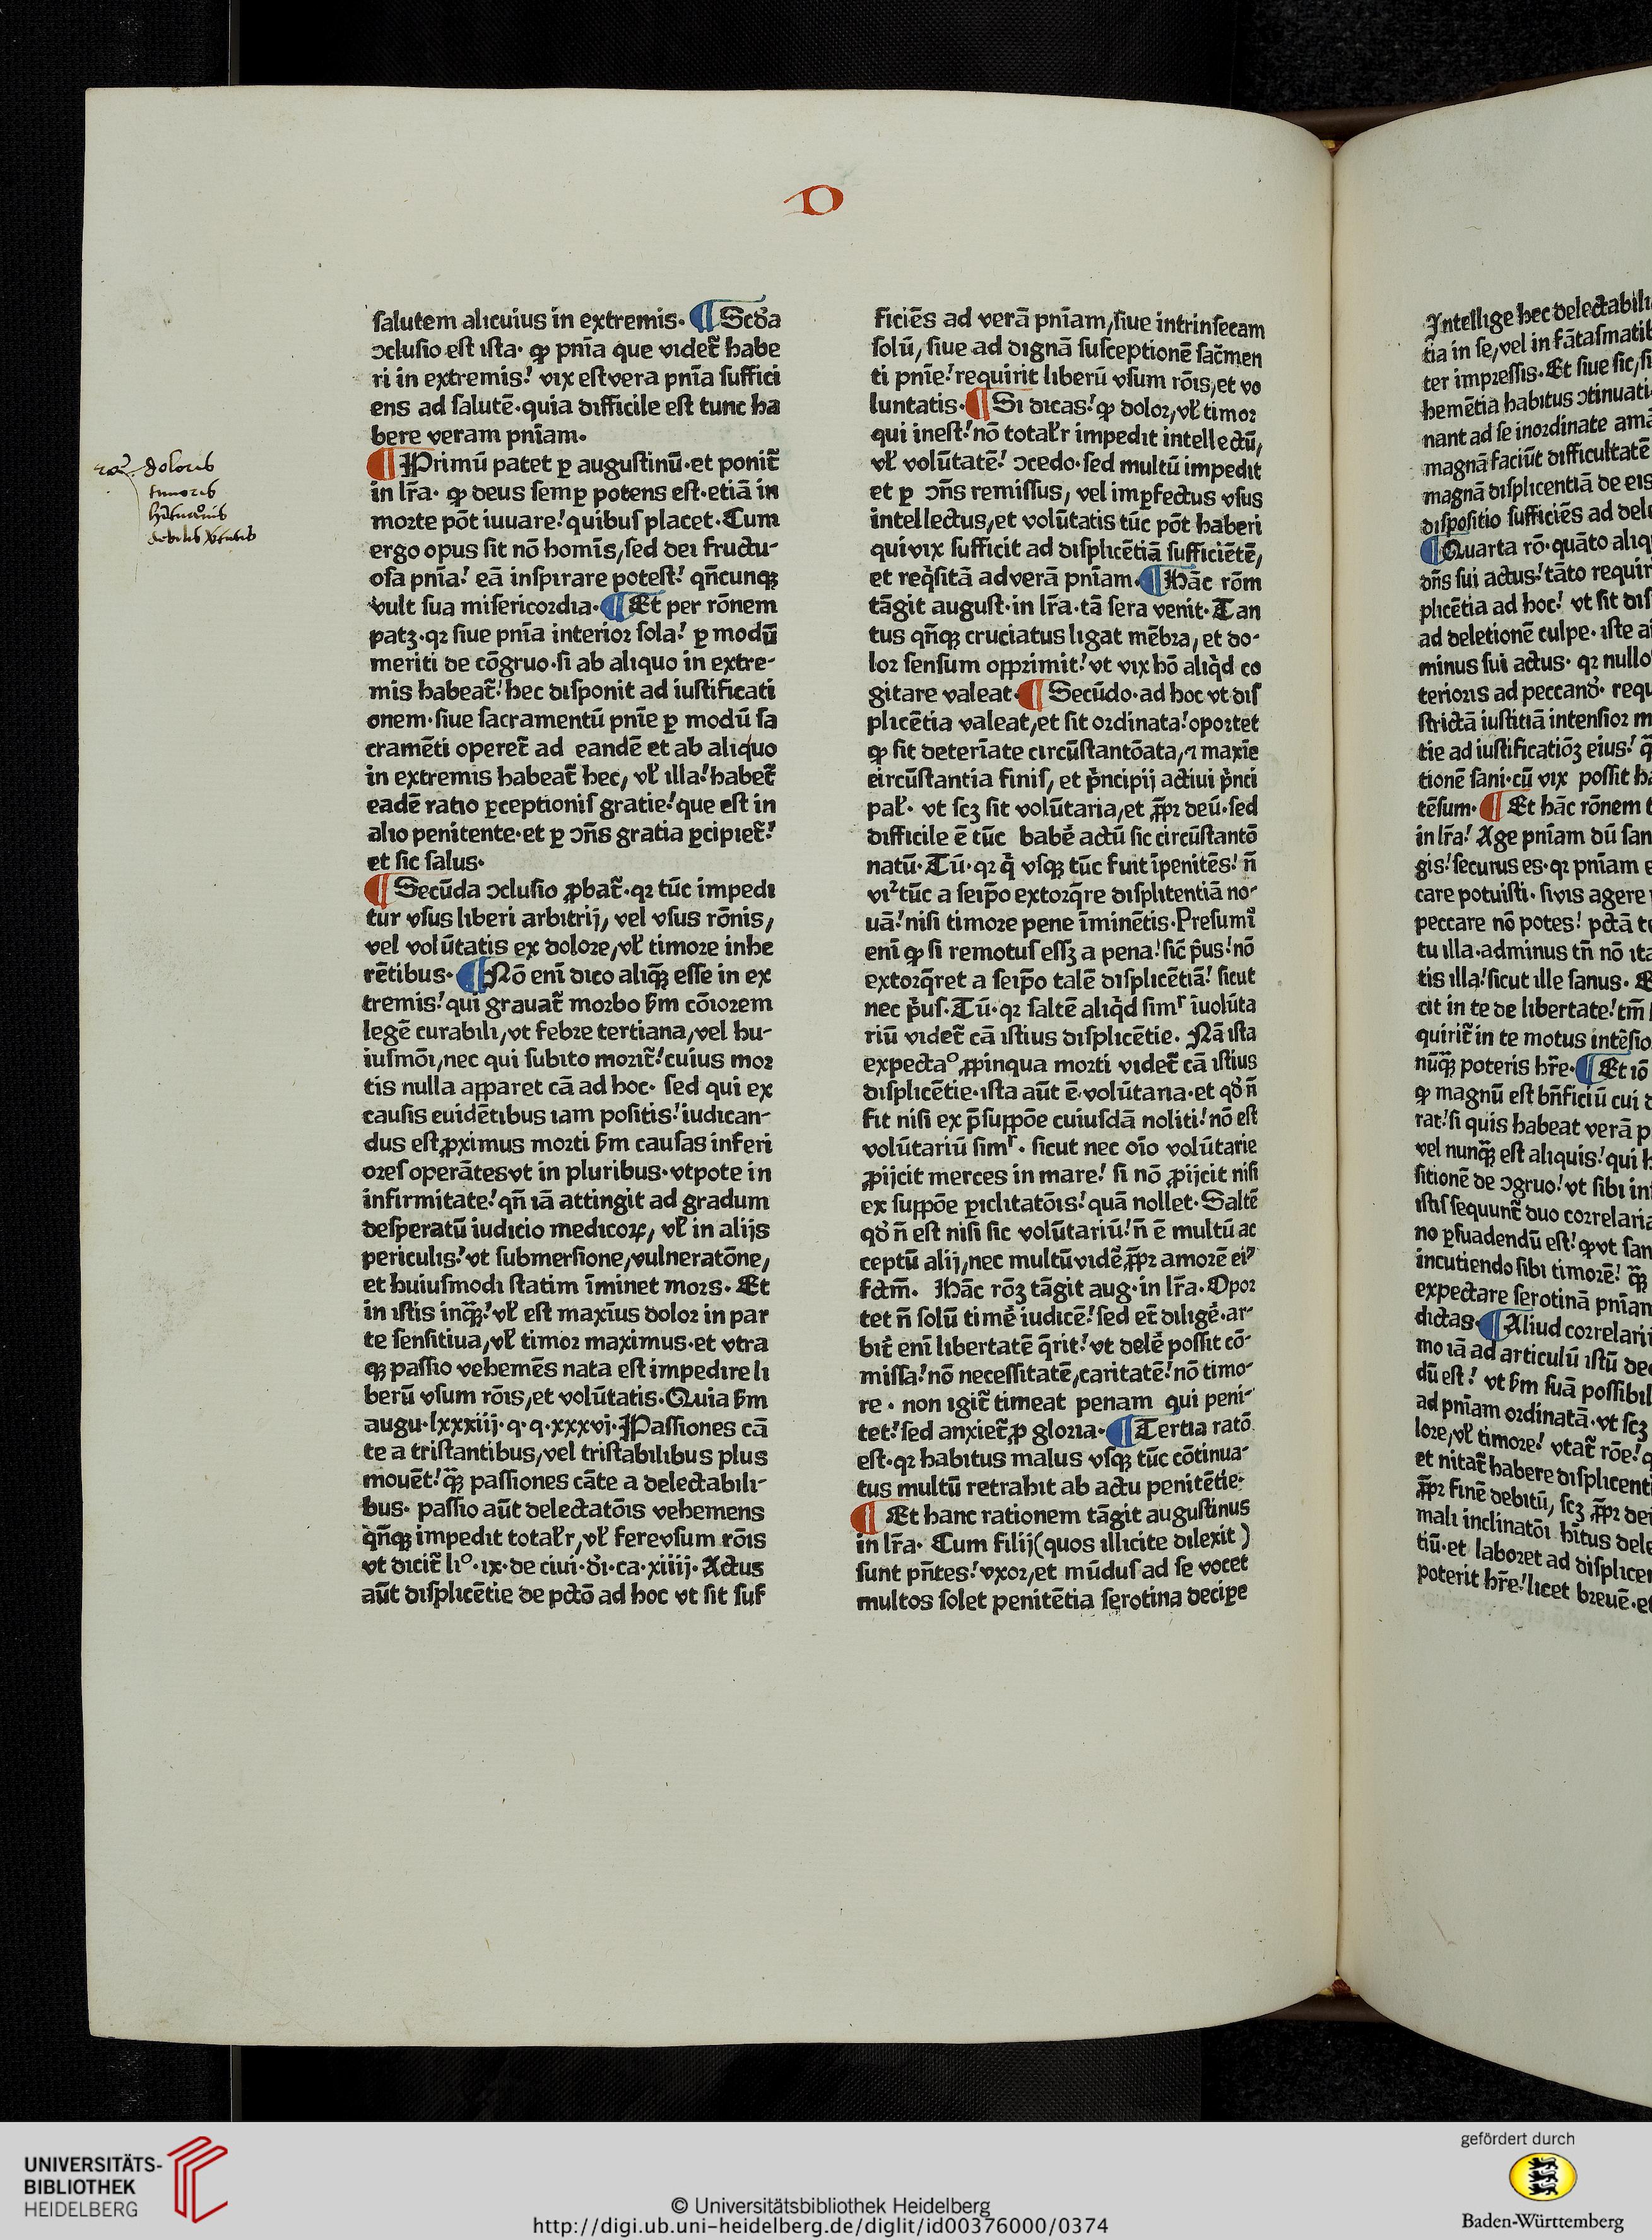 D
salutem alicuius in extremis. ¶ Scd̓a
ↄclusio est ista. ꝙ pnīa que videt᷑ habe
ri in extremis! vix est vera pnīa suffici
ens ad salutē. quia difficile est tunc ha
bere veram pnīam.
¶ Primū patet ꝑ augustinū. et ponit᷑
in lr̄a. ꝙ deus semꝑ potens est. etiā in
morte pōt iuuare! quibus placet. Cum
ergo opus sit nō homīs, sed dei fructu-
osa pnīa! eā inspirare potest! qn̄cunqꝫ
vult sua misericordia. ¶ Et per rōnem
patꝫ. qꝛ siue pnīa interior sola! ꝑ modū
meriti de cōgruo. si ab aliquo in extre-
mis habeat᷑! hec disponit ad iustificati
onem. siue sacramentū pnīe ꝑ modū sa
cramēti operet᷑ ad eandē et ab aliquo
in extremis habeat᷑ hec, vl̄ illa! habet᷑
eadē ratio ꝑceptionis gratie! que est in
alio penitente. et ꝑ ↄn̄s gratia ꝑcipiet᷑!
et sic salus.
¶ Secūda ↄclusio ꝓbat᷑. qꝛ tūc impedi
tur vsus liberi arbitrij, vel vsus rōnis,
vel volūtatis ex dolore, vl̄ timore inhe
rētibus. ¶ Nō enī dico aliqꝫ esse in ex
tremis! qui grauat᷑ morbo ẜm cōiorem
legē curabili, vt febre tertiana, vel hu-
iusmōi, nec qui subito morit᷑! cuius mor
tis nulla apparet cā ad hoc. sed qui ex
causis euidētibus iam positis! iudican-
dus est ꝓximus morti ẜm causas inferi
ores operātes vt in pluribus. vtpote in
infirmitate! qn̄ iā attingit ad gradum
desperatū iudicio medicoꝝ, vl̄ in alijs
periculis! vt submersione, vulneratōne,
et huiusmodi statim īminet mors. Et
in istis inqꝫ! vl̄ est maxīus dolor in par
te sensitiua, vl̄ timor maximus. et vtra
qꝫ passio vehemēs nata est impedire li
berū vsum rōis, et volūtatis. Quia ẜm
augu. lxxxiij. q. q. xxxvj. Passiones cā
te a tristantibus, vel tristabilibus plus
mouēt! qꝫ passiones cāte a delectabili-
bus. passio aūt delectatōis vehemens
qn̄qꝫ impedit total̄r, vl̄ fere vsum rōis
vt dicit᷑ li°. ix. de ciui. di. ca. xiiij. Actus
aūt displicētie de pctō ad hoc vt sit suf
ficiēs ad verā pnīam, siue intrinsecam
solū, siue ad dignā susceptionē sac̄men
ti pnīe! requirit liberū vsum rōis, et vo
luntatis. ¶ Si dicas! ꝙ dolor, vl̄ timor
qui inest! nō total̄r impedit intellectū,
vl̄ volūtatē! ↄcedo. sed multū impedit
et ꝑ ↄn̄s remissus, vel imꝑfectus vsus
intellectus, et volūtatis tūc pōt haberi
qui vix sufficit ad displicētiā sufficiētē,
et reqͥsitā ad verā pnīam. ¶ Hāc rōm
tāgit august. in lr̄a. tā sera venit. Tan
tus qn̄qꝫ cruciatus ligat mēbra, et do-
lor sensum opprimit! vt vix hō aliqͥd co
gitare valeat. ¶ Secūdo. ad hoc vt dis
plicētia valeat, et sit ordinata! oportet
ꝙ sit deterīate circūstantōata, ⁊ maxīe
circūstantia finis, et pͥncipij actiui pͥnci
pal̄. vt scꝫ sit volūtaria, et ꝓpꝛ deū. sed
difficile ē tūc habē actū sic circūstantō
natū. Tū. qꝛ qͥ vsqꝫ tūc fuit īpenitēs! n̄
vi² tūc a seip̄o extorq̄re displitentiā no-
uā! nisi timore pene īminētis. Presumi
enī ꝙ si remotus essꝫ a pena! sic̄ pͥus! nō
extorq̄ret a seip̄o talē displicētiā! sicut
nec pͥus. Tū. qꝛ saltē aliqͥd simͬ īuolūta
riū videt᷑ cā istius displicētie. Nā ista
expecta° ꝓpinqua morti videt᷑ cā istius
displicētie. ista aūt ē. volūtaria. et qd̓ n̄
fit nisi ex p̄suppōe cuiusdā noliti! nō est
volūtariū simͬ. sicut nec oīo volūtarie
ꝓijcit merces in mare! si nō ꝓijcit nisi
ex suppōe ꝑiclitatōis! quā nollet. Saltē
qd̓ n̄ est nisi sic volūtariū! n̄ ē multū ac
ceptū alij, nec multū vidē ꝓpꝛ amorē eiꝰ
fctm̄. Hāc rōꝫ tāgit aug. in lr̄a. Opor
tet n̄ solū timē iudicē! sed et᷑ diligē. ar-
bit᷑ enī libertatē q̄rit! vt delē possit cō-
missa! nō necessitatē, caritatē! nō timo-
re. non igit᷑ timeat penam qui peni-
tet! sed anxiet᷑ ꝓ gloria. ¶ Tertia ratō
est. qꝛ habitus malus vsqꝫ tūc cōtinua-
tus multū retrahit ab actu penitētie.
¶ Et hanc rationem tāgit augustinus
in lr̄a. Cum filij (quos illicite dilexit)
sunt pn̄tes! vxor, et mūdus ad se vocet
multos solet penitētia serotina decipe
doloris
timoris
Intellige hec delectabili
tia in se, vel in fātasmatib
ter impressis. Et siue sic, si
hemētia habitus ↄtinuati
nant ad se inordinate ama
magnā faciūt difficultatē
magnā displicentiā de eis
dispositio sufficiēs ad dele
¶ Quarta rō. quāto aliq
dn̄s sui actus! tāto requir
plicētia ad hoc! vt sit dis
ad deletionē culpe. iste a
minus sui actus. qꝛ nullo
terioris ad peccand̓. requ
strictā iustitiā intensior m
tie ad iustificatiōꝫ eius! q̄
tionē sani. cū vix possit ha
tēsum. ¶ Et hāc rōnem t
in lr̄a! Age pnīam dū san
gis! securus es. qꝛ pnīam e
care potuisti. si vis agere
peccare nō potes! pctā te
tu illa. adminus tn̄ nō ita
tis illa! sicut ille sanus. E
cit in te de libertate! tm̄
quirit᷑ in te motus intēsio
nūqꝫ poteris hr̄e. ¶ Et iō
ꝙ magnū est bn̄ficiū cui d
rat! si quis habeat verā p
vel nunqꝫ est aliquis! qui h
sitionē de ↄgruo! vt sibi in
istis sequunt᷑ duo correlaria
no ꝑsuadendū est! ꝙ vt san
incutiendo sibi timorē! qꝫ
expectare serotinā pnīam
dictas. ¶ Aliud correlari
mo iā ad articulū istū de
dū est! vt ẜm suā possibil
ad pnīam ordinatā. vt scꝫ
lore, vl̄ timore! vtat᷑ rōe! q
et nitat᷑ habere displicenti
ꝓpꝛ finē debitū, scꝫ ꝓpꝛ de
mali inclinatōi hītus dele
tiū. et laboret ad displice
poterit hr̄e! licet breuē. et
UNIVERSITÄTS-
BIBLIOTHEK
HEIDELBERG
© Universitätsbibliothek Heidelberg
http://digi.ub.uni-heidelberg.de/diglit/id00376000/0374
gefördert durch
Baden-Württemberg